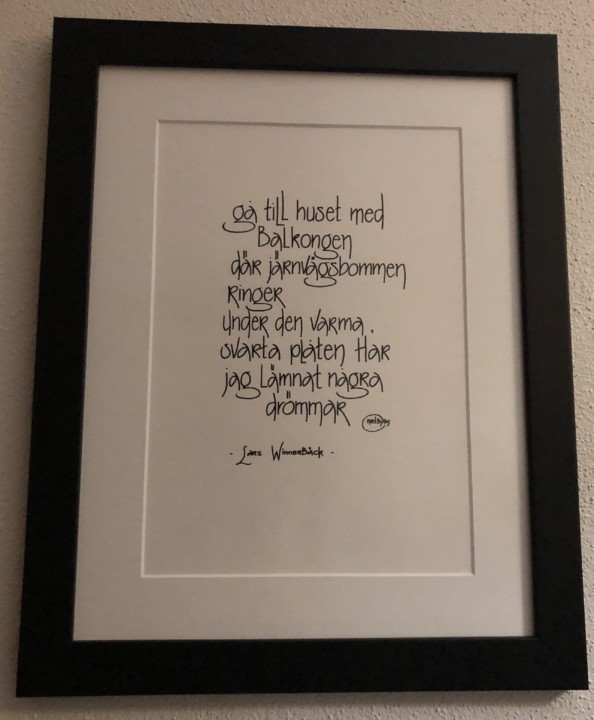 gå till huset med
Balkongen
där järnvägsbommen
Ringer
under den varma,
svarta plåten Har
jag Lämnat några
drömmar
- Lars WinnerBäck -